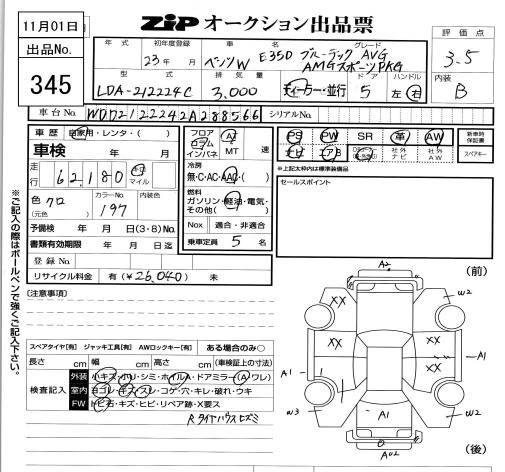 11月01日
ZIP オークション出品票
出品No.
345
評価点
3.5
内装
B
年式
初年度登録
23年 月
車名
ベンツW
グレード
E350 ブルーテック AVG
AMGスポーツPKG
型式
LDA-212224C
排気量
3,000
ディーラー・並行
ドア
5
ハンドル
左・右
車台No.
WDD2122242A288566
シリアルNo.
車歴 自家用・レンタ・( )
車検 年 月
走行 62,180 キロ マイル
色 クロ
(元色)
カラーNo.
197
内装色
予備検 年 月 日(3・8)No.
書類有効期限 年 月 日迄
登録No.
リサイクル料金 有(¥26,040) 未
フロア
コラム
インパネ
AT
MT
速
冷房
無・C・AC・AAC・( )
燃料
ガソリン・軽油・電気・
その他( )
Nox 適合・非適合
乗車定員 5 名
PS PW SR 革 AW
ナビ 社外ナビ 社外AW
新車時保証書
スペアキー
※上記太枠内は標準装備品
セールスポイント
※ご記入の際はボールペンで強くご記入下さい。
[注意事項]
スペアタイヤ[有] ジャッキ工具[有] AWロックキー[有] ある場合のみ○
長さ cm 幅 cm 高さ cm (車検証上の寸法)
検査記入
外装 小キズ・ホリ・シミ・ホイルA・ドアミラー(A・ワレ)
室内 ヨゴレ・キズ・スレ・コゲ・穴・キレ・破れ・ウキ
FW トビ石・キズ・ヒビ・リペア跡・X要ス
(前)
A2
W2
XX
XX
A1
XX
A1
W3
A1
W2
A02
(後)